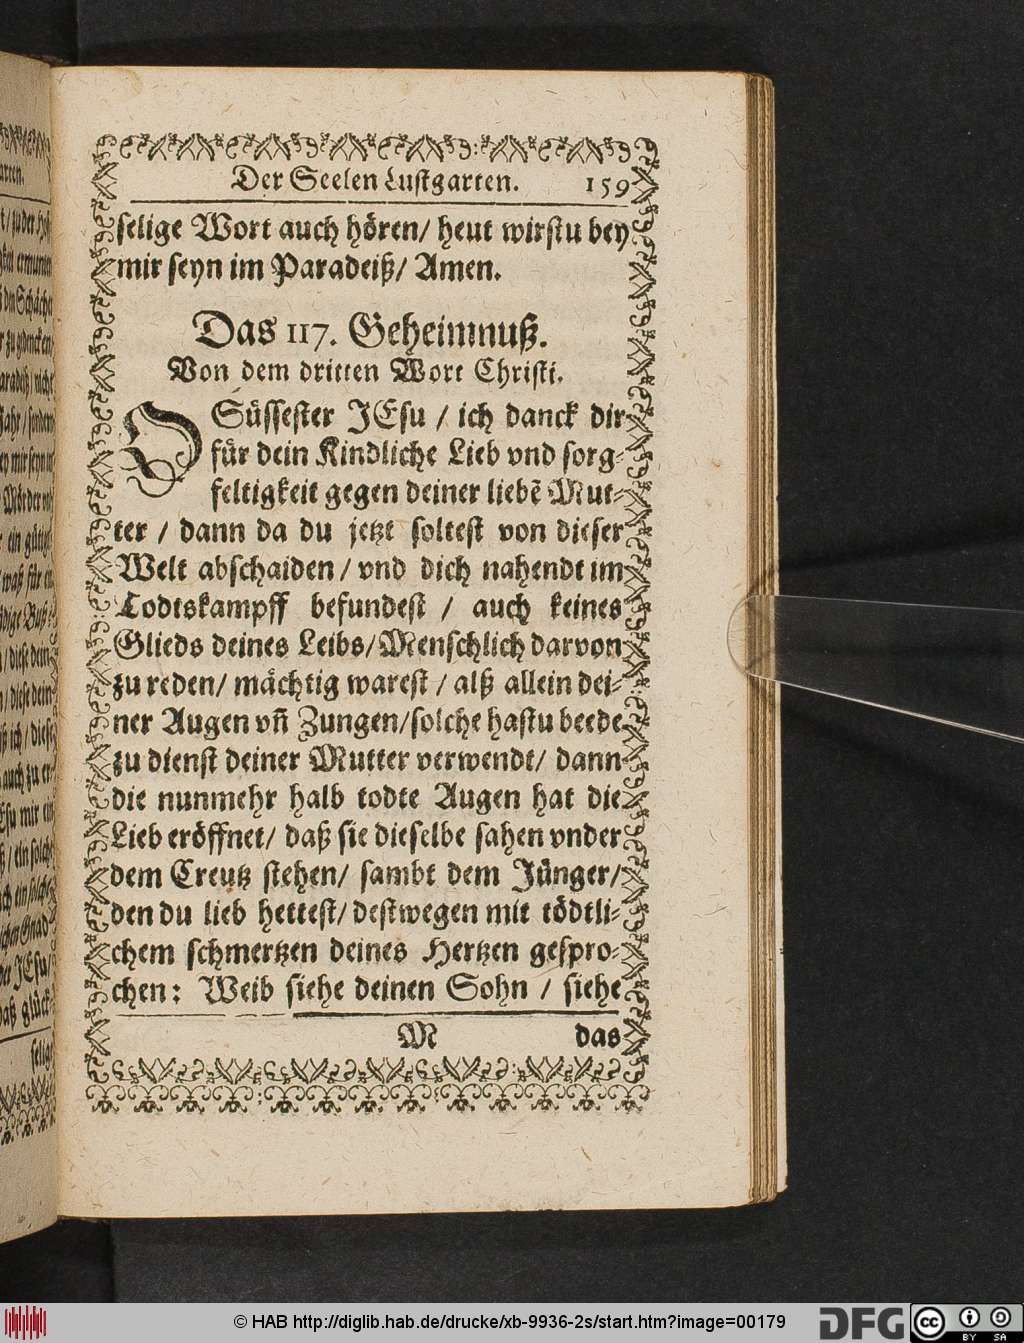 Der Seelen Lustgarten. 159
selige Wort auch hören/ heut wirstu bey
mir seyn im Paradeiß/ Amen.
Das 117. Geheimnuß.
Von dem dritten Wort Christi.
O Süssester JEsu / ich danck dir
für dein Kindliche Lieb vnd sorg-
feltigkeit gegen deiner liebẽ Mut-
ter / dann da du jetzt soltest von dieser
Welt abschaiden / vnd dich nahendt im
Todtskampff befundest / auch keines
Glieds deines Leibs/ Menschlich darvon
zu reden/ mächtig warest / alß allein dei-
ner Augen vñ Zungen/ solche hastu beede
zu dienst deiner Mutter verwendt/ dann
die nunmehr halb todte Augen hat die
Lieb eröffnet/ daß sie dieselbe sahen vnder
dem Creutz stehen/ sambt dem Jünger/
den du lieb hettest/ destwegen mit tödtli-
chem schmertzen deines Hertzen gespro-
chen: Weib siehe deinen Sohn / siehe
M das
© HAB http://diglib.hab.de/drucke/xb-9936-2s/start.htm?image=00179
DFG
cc BY SA